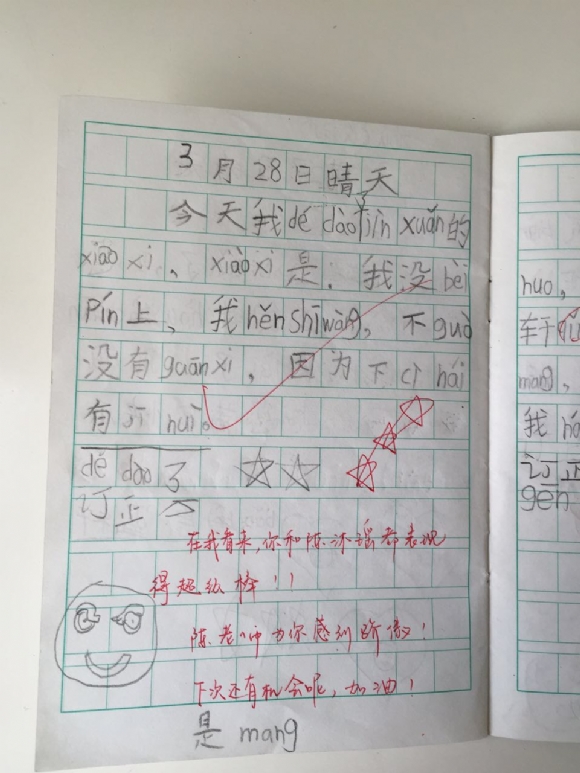 3月28日晴天
今天我dé dào了jìn xuǎn的
xiāo xi、xiāo xi是、我没bèi
Pín上、我hěn shī wàng、不guò
没有guān xi、因为下cì hái
有jī huì。
dé dào了
订正
在我看来,你和陈沐瑶都表现
得超级棒!!
陈老师为你感到骄傲!
下次还有机会呢,加油!
是 mang
huo,
车于
mang,
我 há
订正
gēn